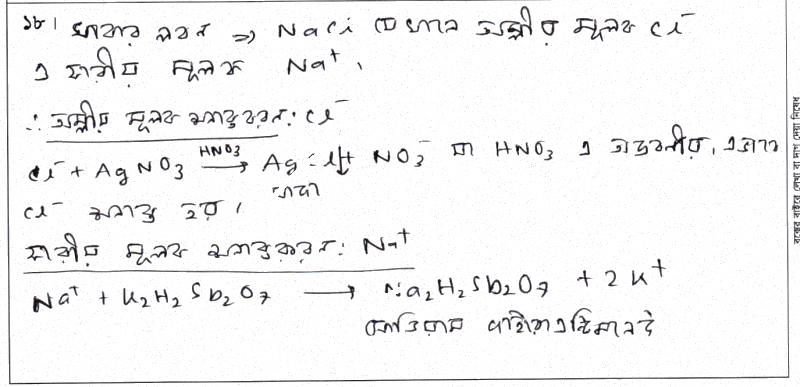 ১৮। খাবার লবন ⇒ NaCl যেখানে অম্লীয় মূলক Cl⁻
ও ক্ষারীয় মূলক Na⁺,
∴ অম্লীয় মূলক শনাক্তকরন: Cl⁻
Cl⁻ + AgNO3 HNO3 → AgCl↓ + NO3⁻ যা HNO3 এ অদ্রবনীয়, এভাবে
সাদা
Cl⁻ শনাক্ত হয়।
ক্ষারীয় মূলক শনাক্তকরন: Na⁺
Na⁺ + K2H2Sb2O7 → Na2H2Sb2O7 + 2K⁺
সোডিয়াম পাইরোএন্টিমোনেট
বক্সের বাইরে লেখা বা দাগ দেয়া নিষেধ